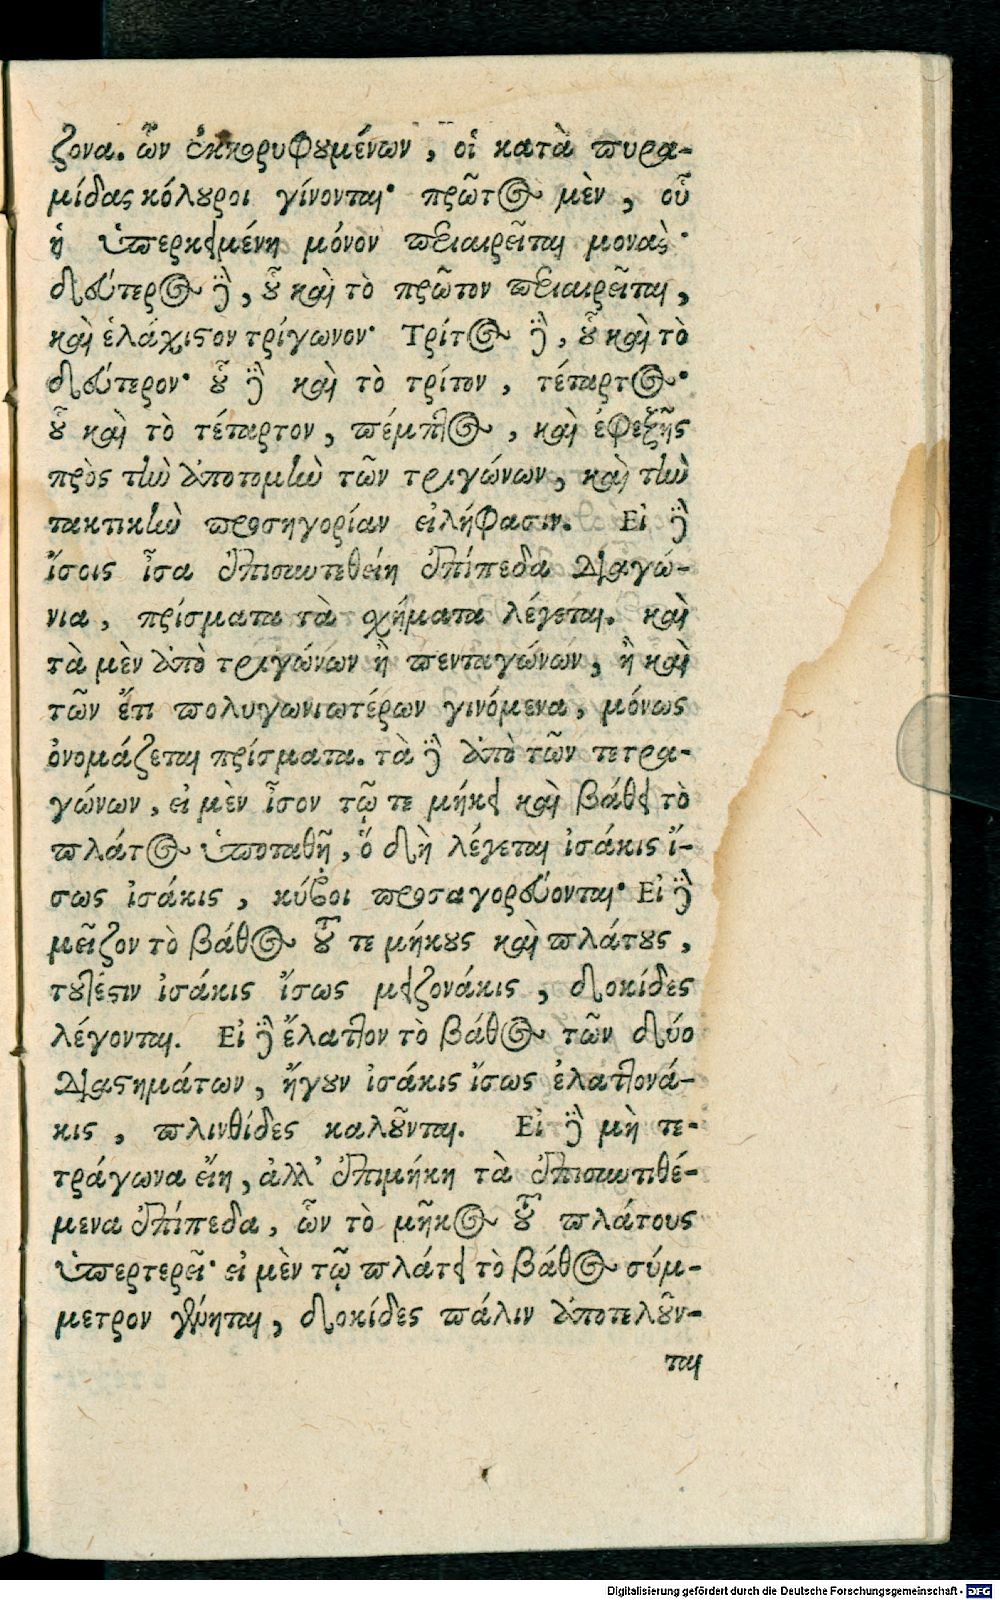 ζονα. ὧν ἐκκορυφουμένων, οἱ κατὰ πυρα-
μίδας κόλουροι γίνονται· πρῶτος μὲν, οὗ
ἡ ὑπερκειμένη μόνον περιαιρεῖται μονὰς·
δεύτερος δὲ, οὗ καὶ τὸ πρῶτον περιαιρεῖται,
καὶ ἐλάχιστον τρίγωνον· Τρίτος δὲ, οὗ καὶ τὸ
δεύτερον· οὗ δὲ καὶ τὸ τρίτον, τέταρτος·
οὗ καὶ τὸ τέταρτον, πέμπτος, καὶ ἐφεξῆς
πρὸς τὴν ἀποτομὴν τῶν τριγώνων, καὶ τὴν
τακτικὴν προσηγορίαν εἰλήφασιν. Εἰ δὲ
ἴσοις ἶσα ἐπισυντεθείη ἐπίπεδα διαγώ-
νια, πρίσματα τὰ σχήματα λέγεται. καὶ
τὰ μὲν ἀπὸ τριγώνων ἢ πενταγώνων, ἢ καὶ
τῶν ἔτι πολυγωνιωτέρων γινόμενα, μόνως
ὀνομάζεται πρίσματα. τὰ δὲ ἀπὸ τῶν τετρα-
γώνων, εἰ μὲν ἶσον τῷ τε μήκει καὶ βάθει τὸ
πλάτος ὑποταθῇ, ὅ δὴ λέγεται ἰσάκις ἴ-
σως ἰσάκις, κύβοι προσαγορεύονται· Εἰ δὲ
μεῖζον τὸ βάθος τοῦ τε μήκους καὶ πλάτους,
τουτέστιν ἰσάκις ἴσως μειζονάκις, δοκίδες
λέγονται. Εἰ δὲ ἔλαττον τὸ βάθος τῶν δύο
διαστημάτων, ἤγουν ἰσάκις ἴσως ἐλαττονά-
κις, πλινθίδες καλοῦνται. Εἰ δὲ μὴ τε-
τράγωνα εἴη, ἀλλ' ἐπιμήκη τὰ ἐπισυντιθέ-
μενα ἐπίπεδα, ὧν τὸ μῆκος τοῦ πλάτους
ὑπερτερεῖ· εἰ μὲν τῷ πλάτει τὸ βάθος σύμ-
μετρον γένηται, δοκίδες πάλιν ἀποτελοῦν-
ται
Digitalisierung gefördert durch die Deutsche Forschungsgemeinschaft - DFG